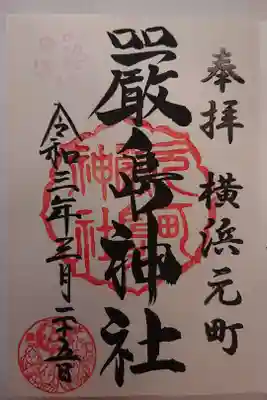 奉拝 横浜元町
嚴島神社
令和三年三月二十五日